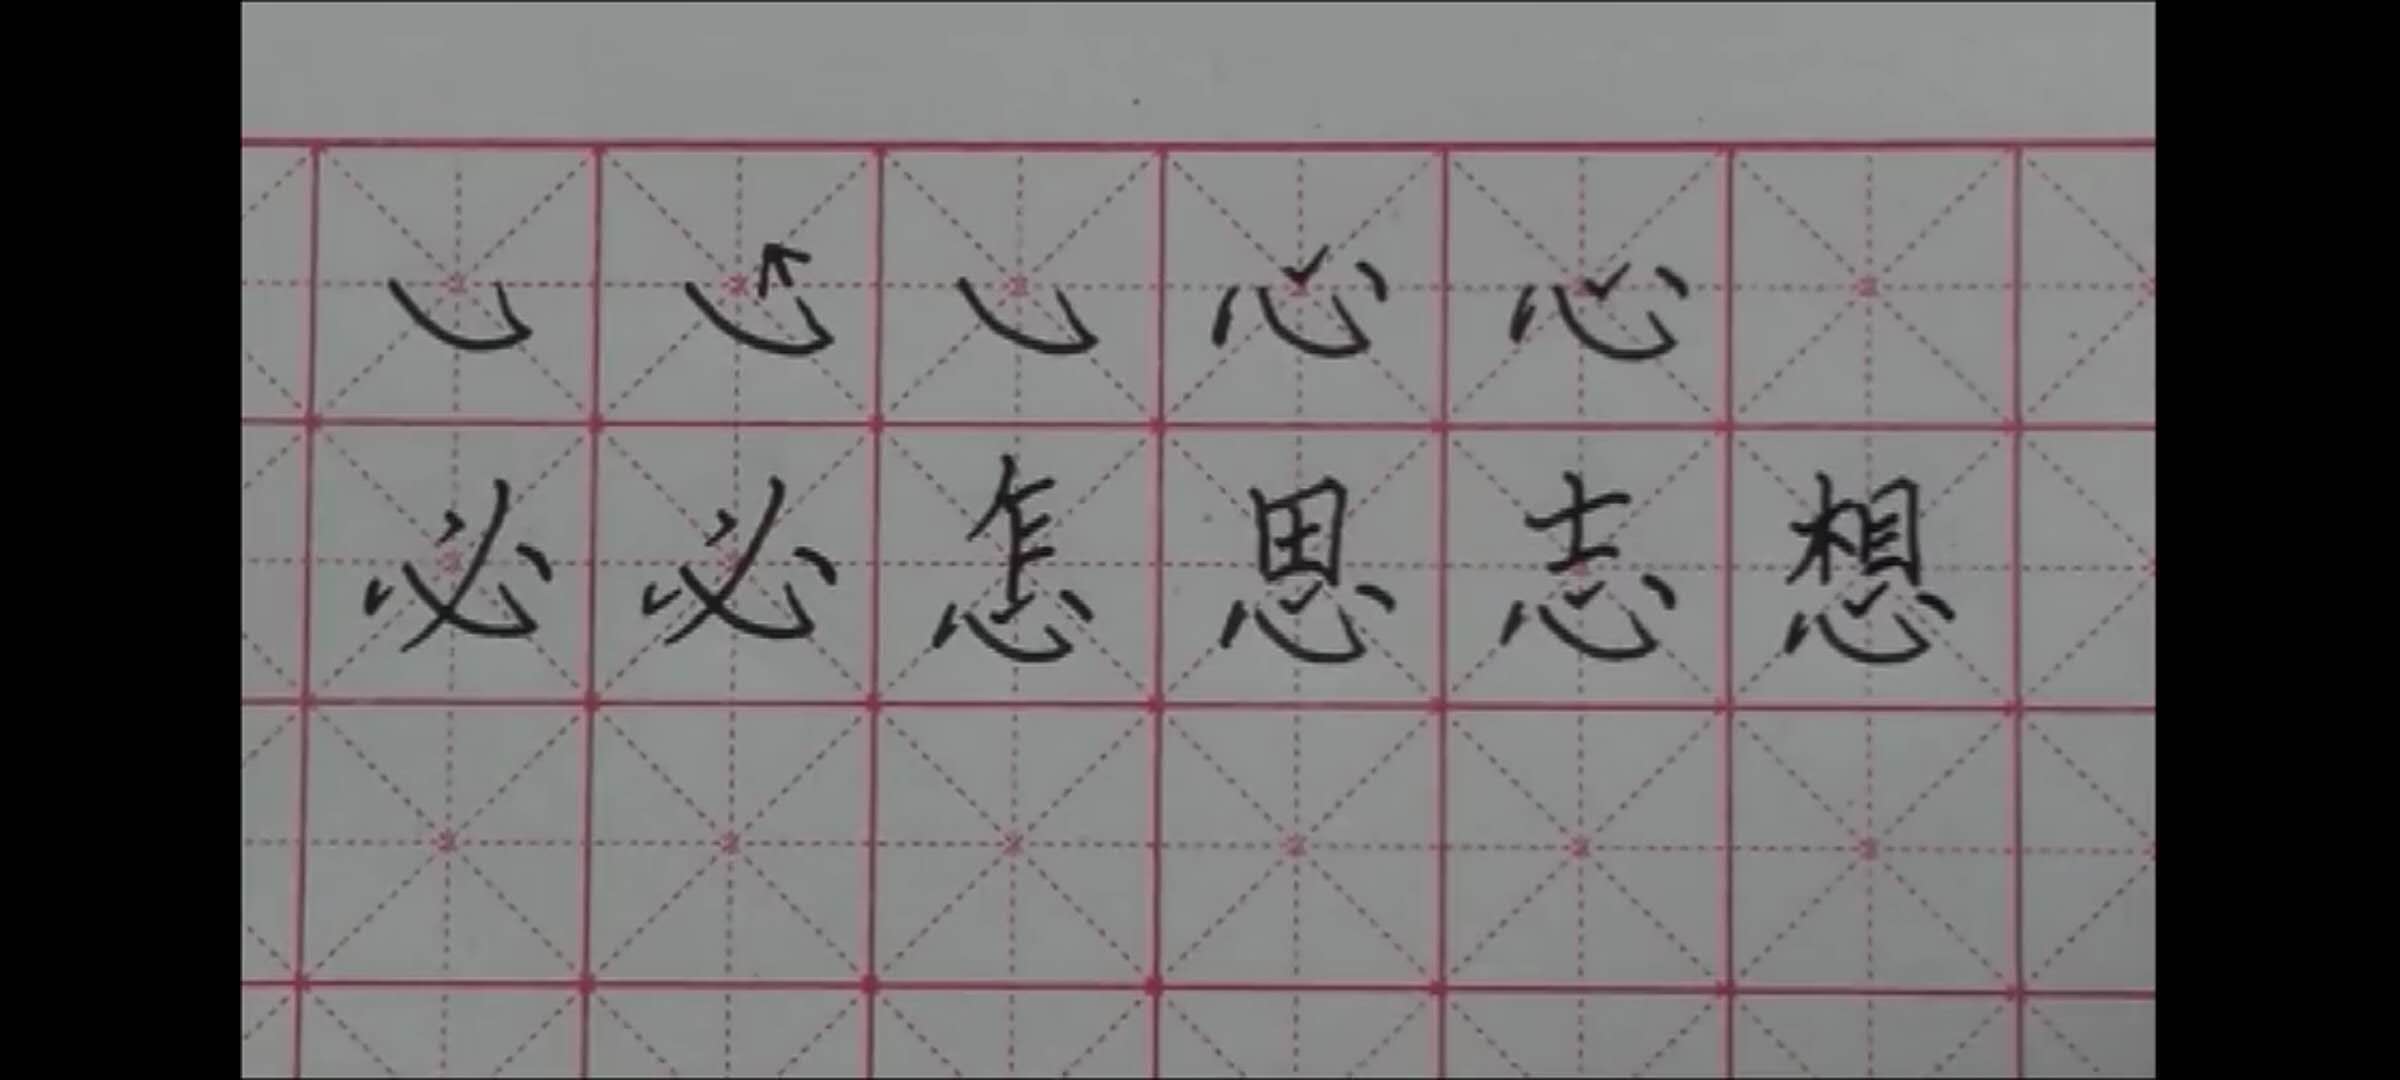 ㇃ ㇃ ㇃ 心 心
必 必 怎 思 志 想